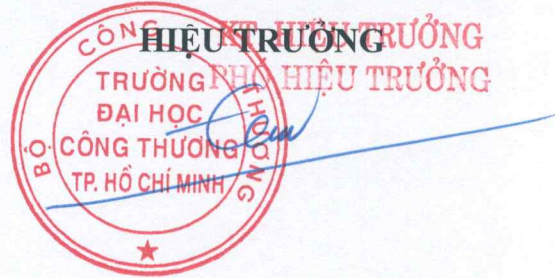 HIỆU TRƯỞNG
KT. HIỆU TRƯỞNG
PHÓ HIỆU TRƯỞNG
BỘ CÔNG THƯƠNG
TRƯỜNG
ĐẠI HỌC
CÔNG THƯƠNG
TP. HỒ CHÍ MINH